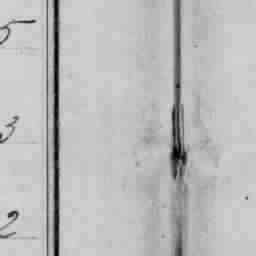 5
3
2